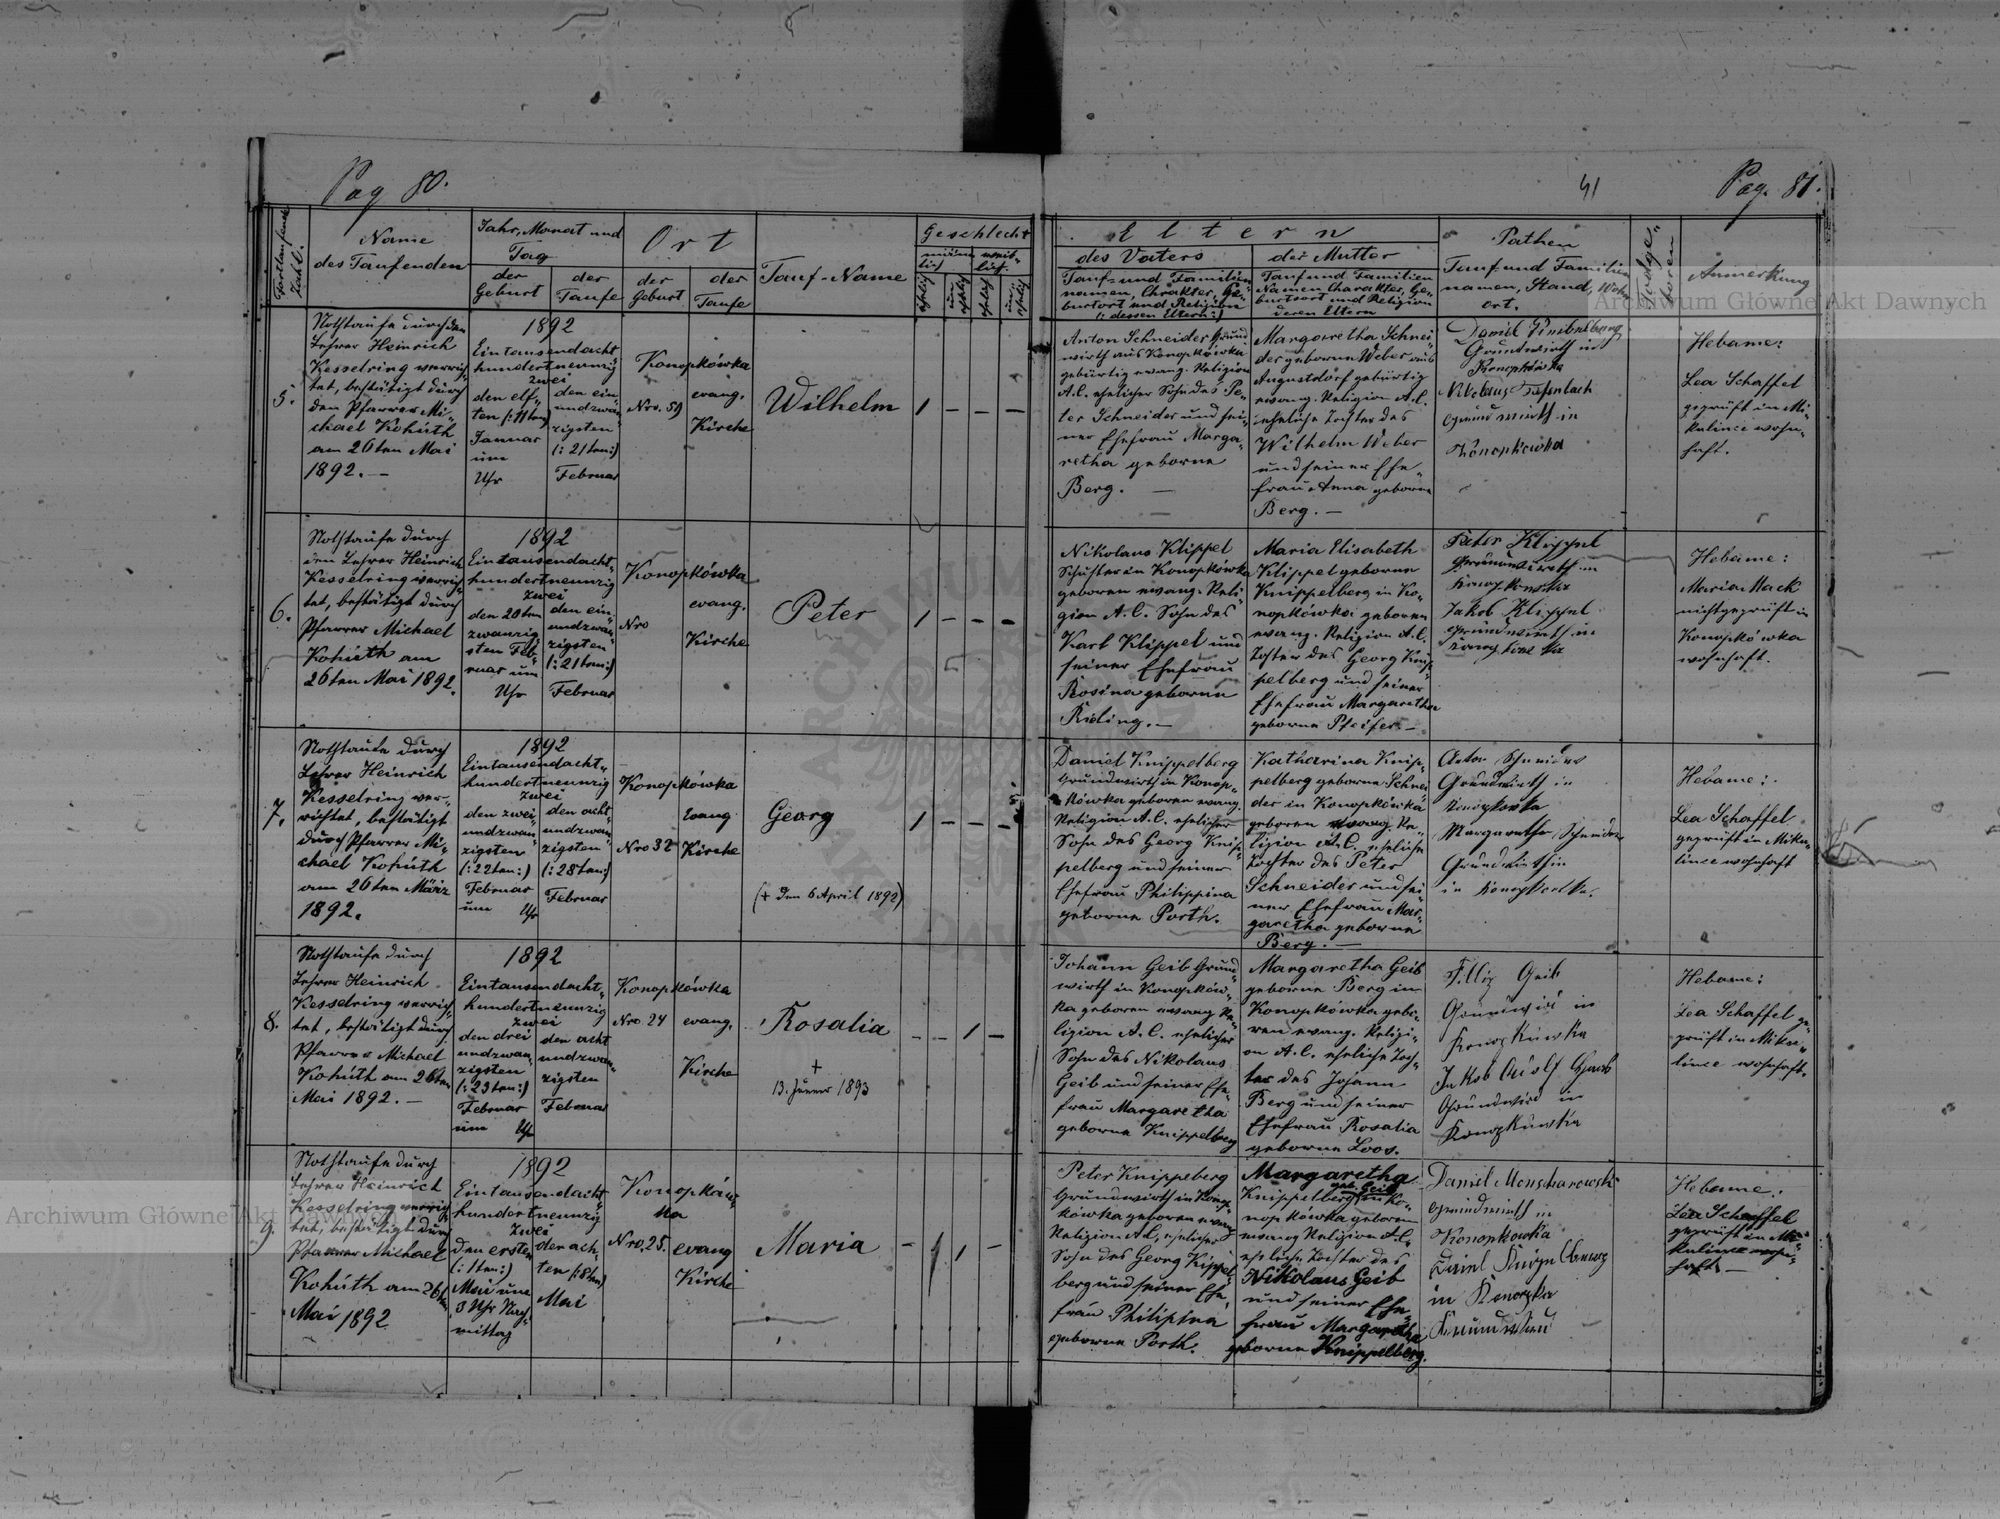 Pag 80.
41
Pag. 81.
Fortlaufende Zahl.
Name
des Taufenden
Jahr, Monat und
Tag
der
Geburt
der
Taufe
Ort
der
Geburt
der
Taufe
Tauf-Name
Geschlecht
männ-
lich
weib-
lich
ehelich
un
ehelich
ehelich
un
ehelich
Eltern
des Vaters
Tauf- und Familien-
namen, Charakter, Ge-
burtort und Religion
(: dessen Eltern:)
der Mutter
Tauf und Familien
Namen Charakter, Ge-
burtsort und Religion
deren Eltern
Pathen
Tauf und Familien
namen, Stand, Wohn
ort.
Todge-
boren
Anmerkung
Archiwum Główne Akt Dawnych
5.
Nothtaufe durch den
Lehrer Heinrich
Kesselring verrich-
tet, bestätigt durch
den Pfarrer Mi-
chael Kohúth
am 26ten Mai
1892. —
1892
Eintausendacht
hundertneunzig
zwei
den elf-
ten (: 11ten)
Januar
um
Uhr
den ein-
undzwan-
zigsten
(: 21ten:)
Februar
Konopkówka
Nro. 59
evang.
Kirche
Wilhelm
1 — — —
Anton Schneider Grund
wirth aus Konopkówka
gebürtig evang. Religion
A.C. ehelicher Sohn des Pe-
ter Schneider und sei-
ner Ehefrau Marga-
retha geborne
Berg. —
Margaretha Schnei-
der geborne Weber aus
Augustdorf gebürtig
evang. Religion A.C.
eheliche Tochter des
Wilhelm Weber
und seiner Ehe-
frau Anna geborne
Berg. —
David
Grundwirth in
Konopkówka
Nikolaus Diefenbach
Grundwirth in
Konopkówka
Hebame:
Lea Schaffel
geprüft in Mi-
kulince wohn-
haft.
6.
Nothtaufe durch
den Lehrer Heinrich
Kesselring verrich-
tet, bestätigt durch
Pfarrer Michael
Kohúth am
26ten Mai 1892.
1892
Eintausendacht-
hundertneunzig
zwei
den 20ten
zwanzig-
sten Feb-
ruar um
Uhr
den ein-
undzwan-
zigsten
(: 21ten:)
Februar
Konopkówka
Nro
evang.
Kirche
Peter
1 — — —
Nikolaus Klippel
Schuster in Konopkówka
geboren evang. Reli-
gion A.C. Sohn des
Karl Klippel und
seiner Ehefrau
Rosina geborne
Rieling. —
Maria Elisabeth
Klippel geborne
Knippelberg in Ko-
nopkówka geboren
evang. Religion A.C.
Tochter des Georg Knip-
pelberg und seiner
Ehefrau Margaretha
geborne Pfeifer —
Peter Klippel
Grundwirth in
Konopkówka
Jakob Klippel
Grundwirth in
Konopkówka
Hebame:
Maria Mack
nicht geprüft in
Konopkówka
wohnhaft.
7.
Nothtaufe durch
Lehrer Heinrich
Kesselring ver-
richtet, bestätigt
durch Pfarrer Mi-
chael Kohúth
am 26ten März
1892.
1892
Eintausendacht-
hundertneunzig
zwei
den zwei-
undzwan-
zigsten
(: 22ten:)
Februar
um Uhr
den acht-
undzwan-
zigsten
(: 28ten:)
Februar
Konopkówka
Nro 32
evang.
Kirche
Georg
(+ den 6 April 1892)
1 — — —
Daniel Knippelberg
Grundwirth in Konop-
kówka geboren evang.
Religion A.C. ehelicher
Sohn des Georg Knip-
pelberg und seiner
Ehefrau Philippina
geborne Porth.
Katharina Knip-
pelberg geborne Schnei-
der in Konopkówka
geboren evang. Re-
ligion A.C. eheliche
Tochter des Peter
Schneider und sei-
ner Ehefrau Mar-
garetha geborne
Berg. —
Anton Schneider
Grundwirth in
Konopkówka
Margaretha Schneider
Grundwirthin
in Konopkówka.
Hebame:
Lea Schaffel
geprüft in Miku-
lince wohnhaft
8.
Nothtaufe durch
Lehrer Heinrich
Kesselring verrich-
tet, bestätigt durch
Pfarrer Michael
Kohúth am 26ten
Mai 1892. —
1892
Eintausendacht-
hundertneunzig
zwei
den drei
undzwan-
zigsten
(: 23ten:)
Februar
um Uhr
den acht
undzwan-
zigsten
Februar
Konopkówka
Nro 24
evang.
Kirche
Rosalia
+
13. Jänner 1893
— — 1 —
Johann Geib Grund-
wirth in Konopków-
ka geboren evang Re-
ligion A.C. ehelicher
Sohn des Nikolaus
Geib und seiner Ehe-
frau Margaretha
geborne Knippelberg
Margaretha Geib
geborne Berg in
Konopkówka gebo-
ren evang. Religi-
on A.C. eheliche Toch-
ter des Johann
Berg und seiner
Ehefrau Rosalia
geborne Loos.
Geib
Grundwird in
Konopkuwka
Jakob Adolf
Grundwird in
Konopkuwka
Hebame:
Lea Schaffel ge-
prüft in Miku-
lince wohnhaft.
9.
Nothtaufe durch
Lehrer Heinrich
Kesselring verrich-
tet, bestätigt durch
Pfarrer Michael
Kohúth am 26ten
Mai 1892
1892
Eintausendacht
hundertneunzig
zwei
den ersten
(: 1ten:)
Mai um
3 Uhr Nach-
mittag
den ach-
ten (: 8ten)
Mai
Konopków-
ka
Nro. 25.
evang
Kirche
Maria
— 1 —
Peter Knippelberg
Grundwirth in Konop-
kówka geboren evang
Religion A.C. ehelicher
Sohn des Georg Knippel-
berg und seiner Ehe-
frau Philipina
geborne Porth.
Margaretha
geb. Geib
Knippelberg in Ko-
nopkówka geboren
evang Religion A.C.
eheliche Tochter des
Nikolaus Geib
und seiner Ehe-
frau Margaretha
geborne Knippelberg.
Daniel
Grundwirth in
Konopkowka
in Konopka
Hebame:
Lea Schaffel
geprüft in Mi-
kulince wohn-
haft —
Archiwum Główne Akt Dawnych